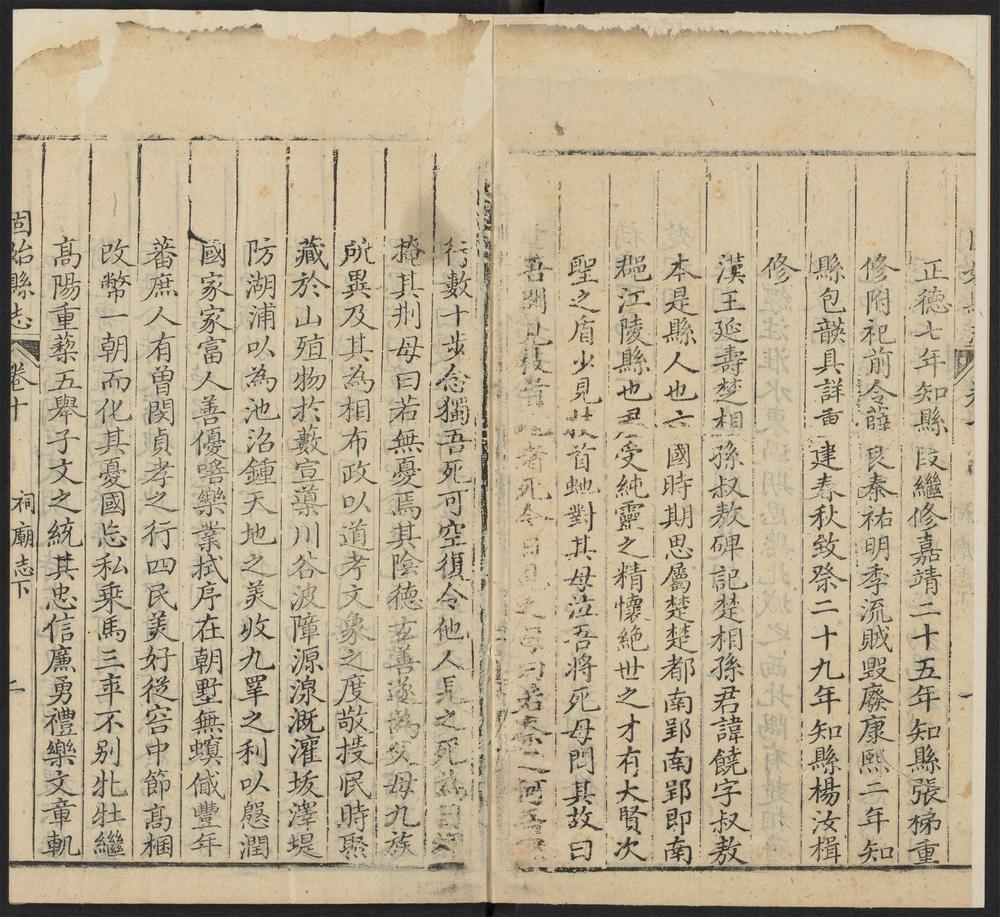 正德七年知縣段繼修嘉靖二十五年知縣張梯重
修附祀前令薛良秦祐明季流賊毀廢康熙二年知
縣包韺具詳重建春秋致祭二十九年知縣楊汝楫
修
漢王延壽楚相孫叔敖碑記楚相孫君諱饒字叔敖
本是縣人也六國時期思屬楚楚都南郢南郢即南
郡江陵縣也君受純靈之精懷絕世之才有大賢次
聖之盾少見枝首虵對其母泣吾將死母問其故曰
吾聞見枝首虵者死今日見之母曰若柰之何吾
行數十步念獨吾死可空復令他人見之死為
掩其刑母曰若無憂焉其陰德玄善遂為父母九族
所異及其為相布政以道考文象之度敬授民時聚
藏於山殖物於藪宣導川谷波障源湶溉灌坂澤堤
防湖浦以為池沼鍾天地之美收九睪之利以殷潤
國家家富人善優噡樂業拭序在朝墅無螟蜮豐年
蕃庶人有曾閔貞孝之行四民美好從容中節高梱
改幣一朝而化其憂國忘私乘馬三年不别牝牡繼
高陽重蔾五舉子文之統其忠信廉勇禮樂文章軌
固始縣志 卷十 祠廟志下 二